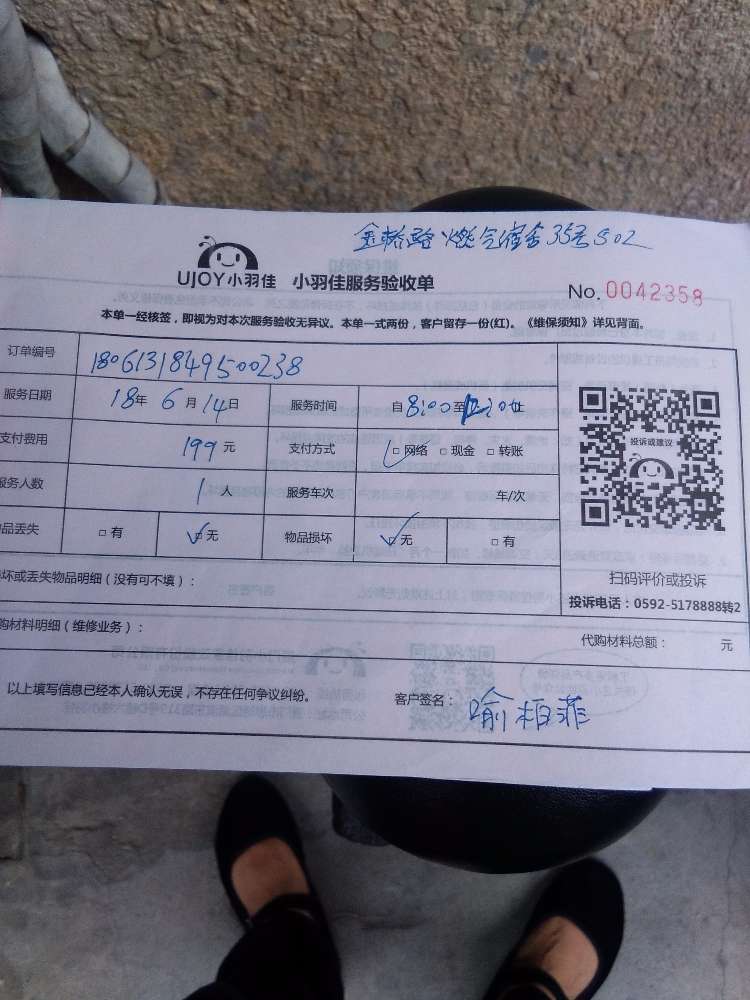 金桥路燃气宿舍35号502
UJOY小羽佳 小羽佳服务验收单
No. 0042358
本单一经核签，即视为对本次服务验收无异议。本单一式两份，客户留存一份(红)。《维保须知》详见背面。
订单编号 1806131849500238
服务日期 18年 6月 14日 服务时间 自 8:00 至 12:00 止
支付费用 199 元 支付方式 □ 网络 □ 现金 □ 转账
服务人数 1 人 服务车次 车/次
品丢失 □ 有 □ 无 物品损坏 □ 无 □ 有
投诉或建议
扫码评价或投诉
投诉电话：0592-5178888转2
坏或丢失物品明细（没有可不填）：
购材料明细（维修业务）： 代购材料总额： 元
以上填写信息已经本人确认无误，不存在任何争议纠纷。 客户签名： 喻柏菲